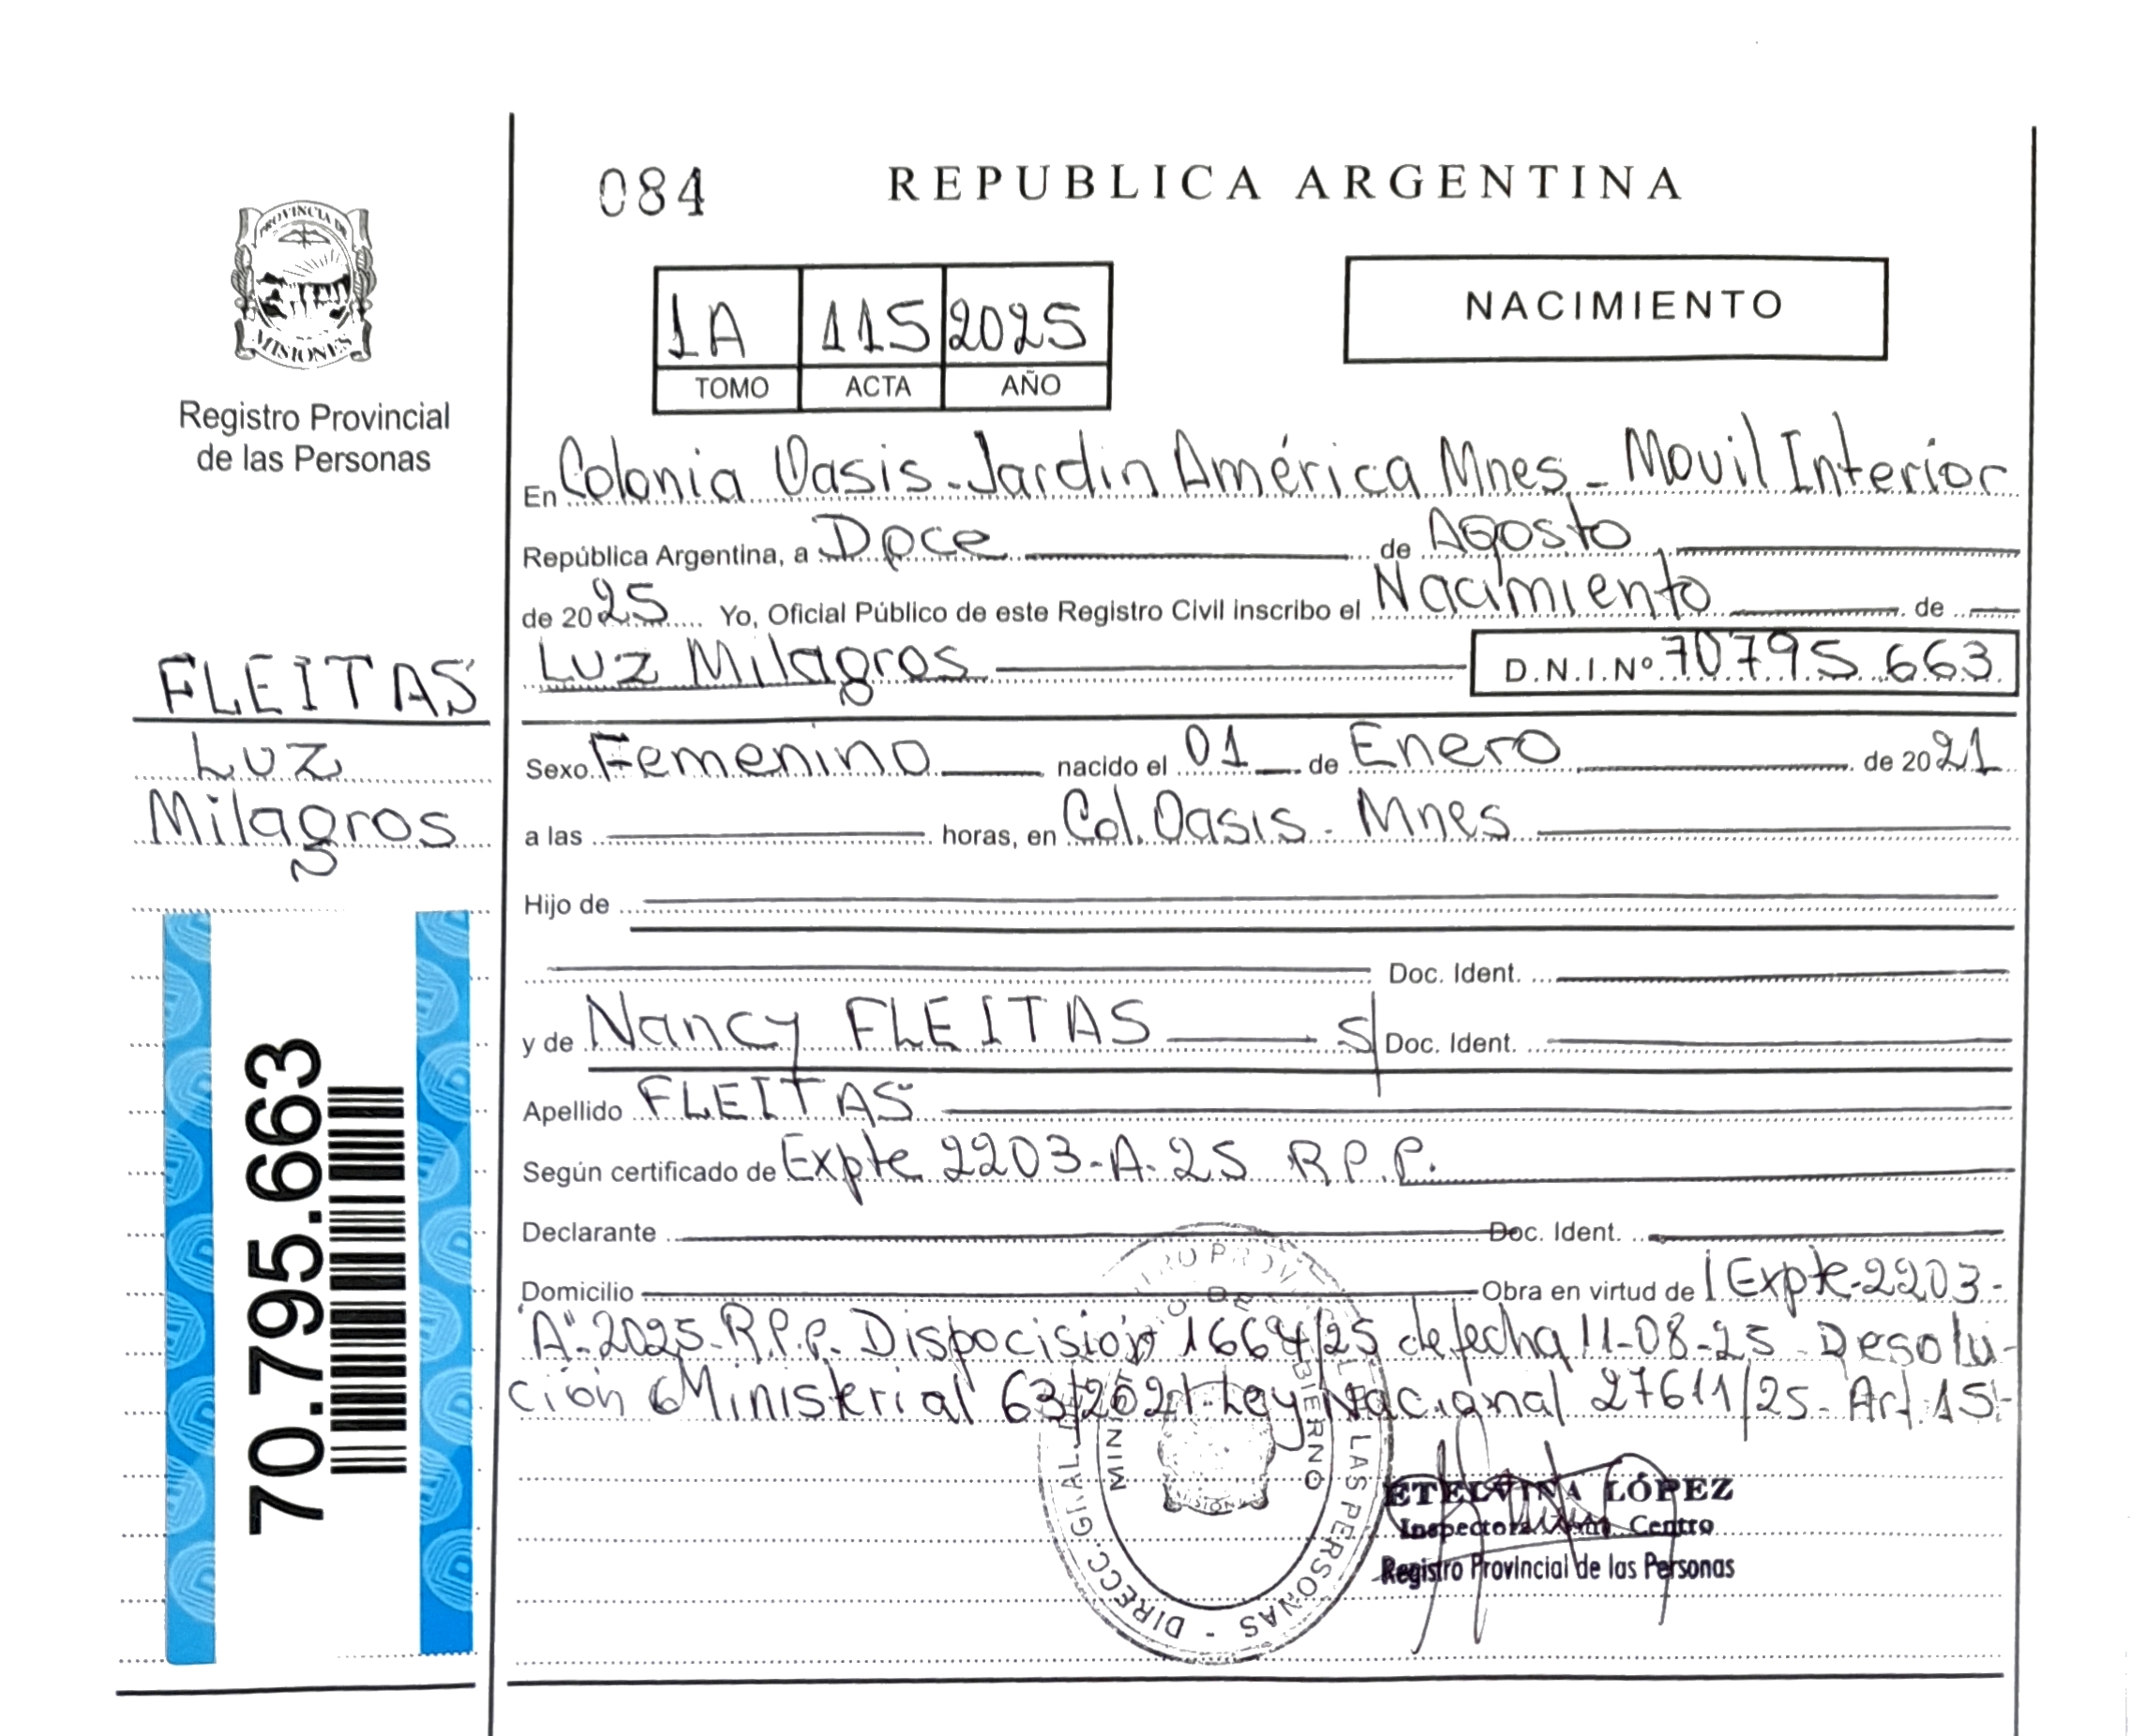 084
REPUBLICA ARGENTINA
PROVINCIA DE
MISIONES
Registro Provincial
de las Personas
1A 115 2025
TOMO ACTA AÑO
NACIMIENTO
En Colonia Oasis - Jardin América Mnes - Movil Interior
República Argentina, a Doce de Agosto
de 2025 Yo, Oficial Público de este Registro Civil inscribo el Nacimiento de
Luz Milagros D.N.I.Nº 70795.663
FLEITAS
Luz
Milagros
Sexo Femenino nacido el 01 de Enero de 2021
a las horas, en Col. Oasis - Mnes
Hijo de
Doc. Ident.
y de Nancy FLEITAS S/ Doc. Ident.
Apellido FLEITAS
Según certificado de Expte 2203-A-25 R.P.P.
Declarante Doc. Ident.
Domicilio Obra en virtud de Expte-2203-
"A"-2025-R.P.P. Dispocision 1664/25 de fecha 11-08-25 - Desolu-
ción Ministerial 63/2021-Ley Nacional 27611/25- Art. 15-
70.795.663
DIRECC. GRAL. LAS PERSONAS
ETELVINA LÓPEZ
Inspectora Centro
Registro Provincial de las Personas